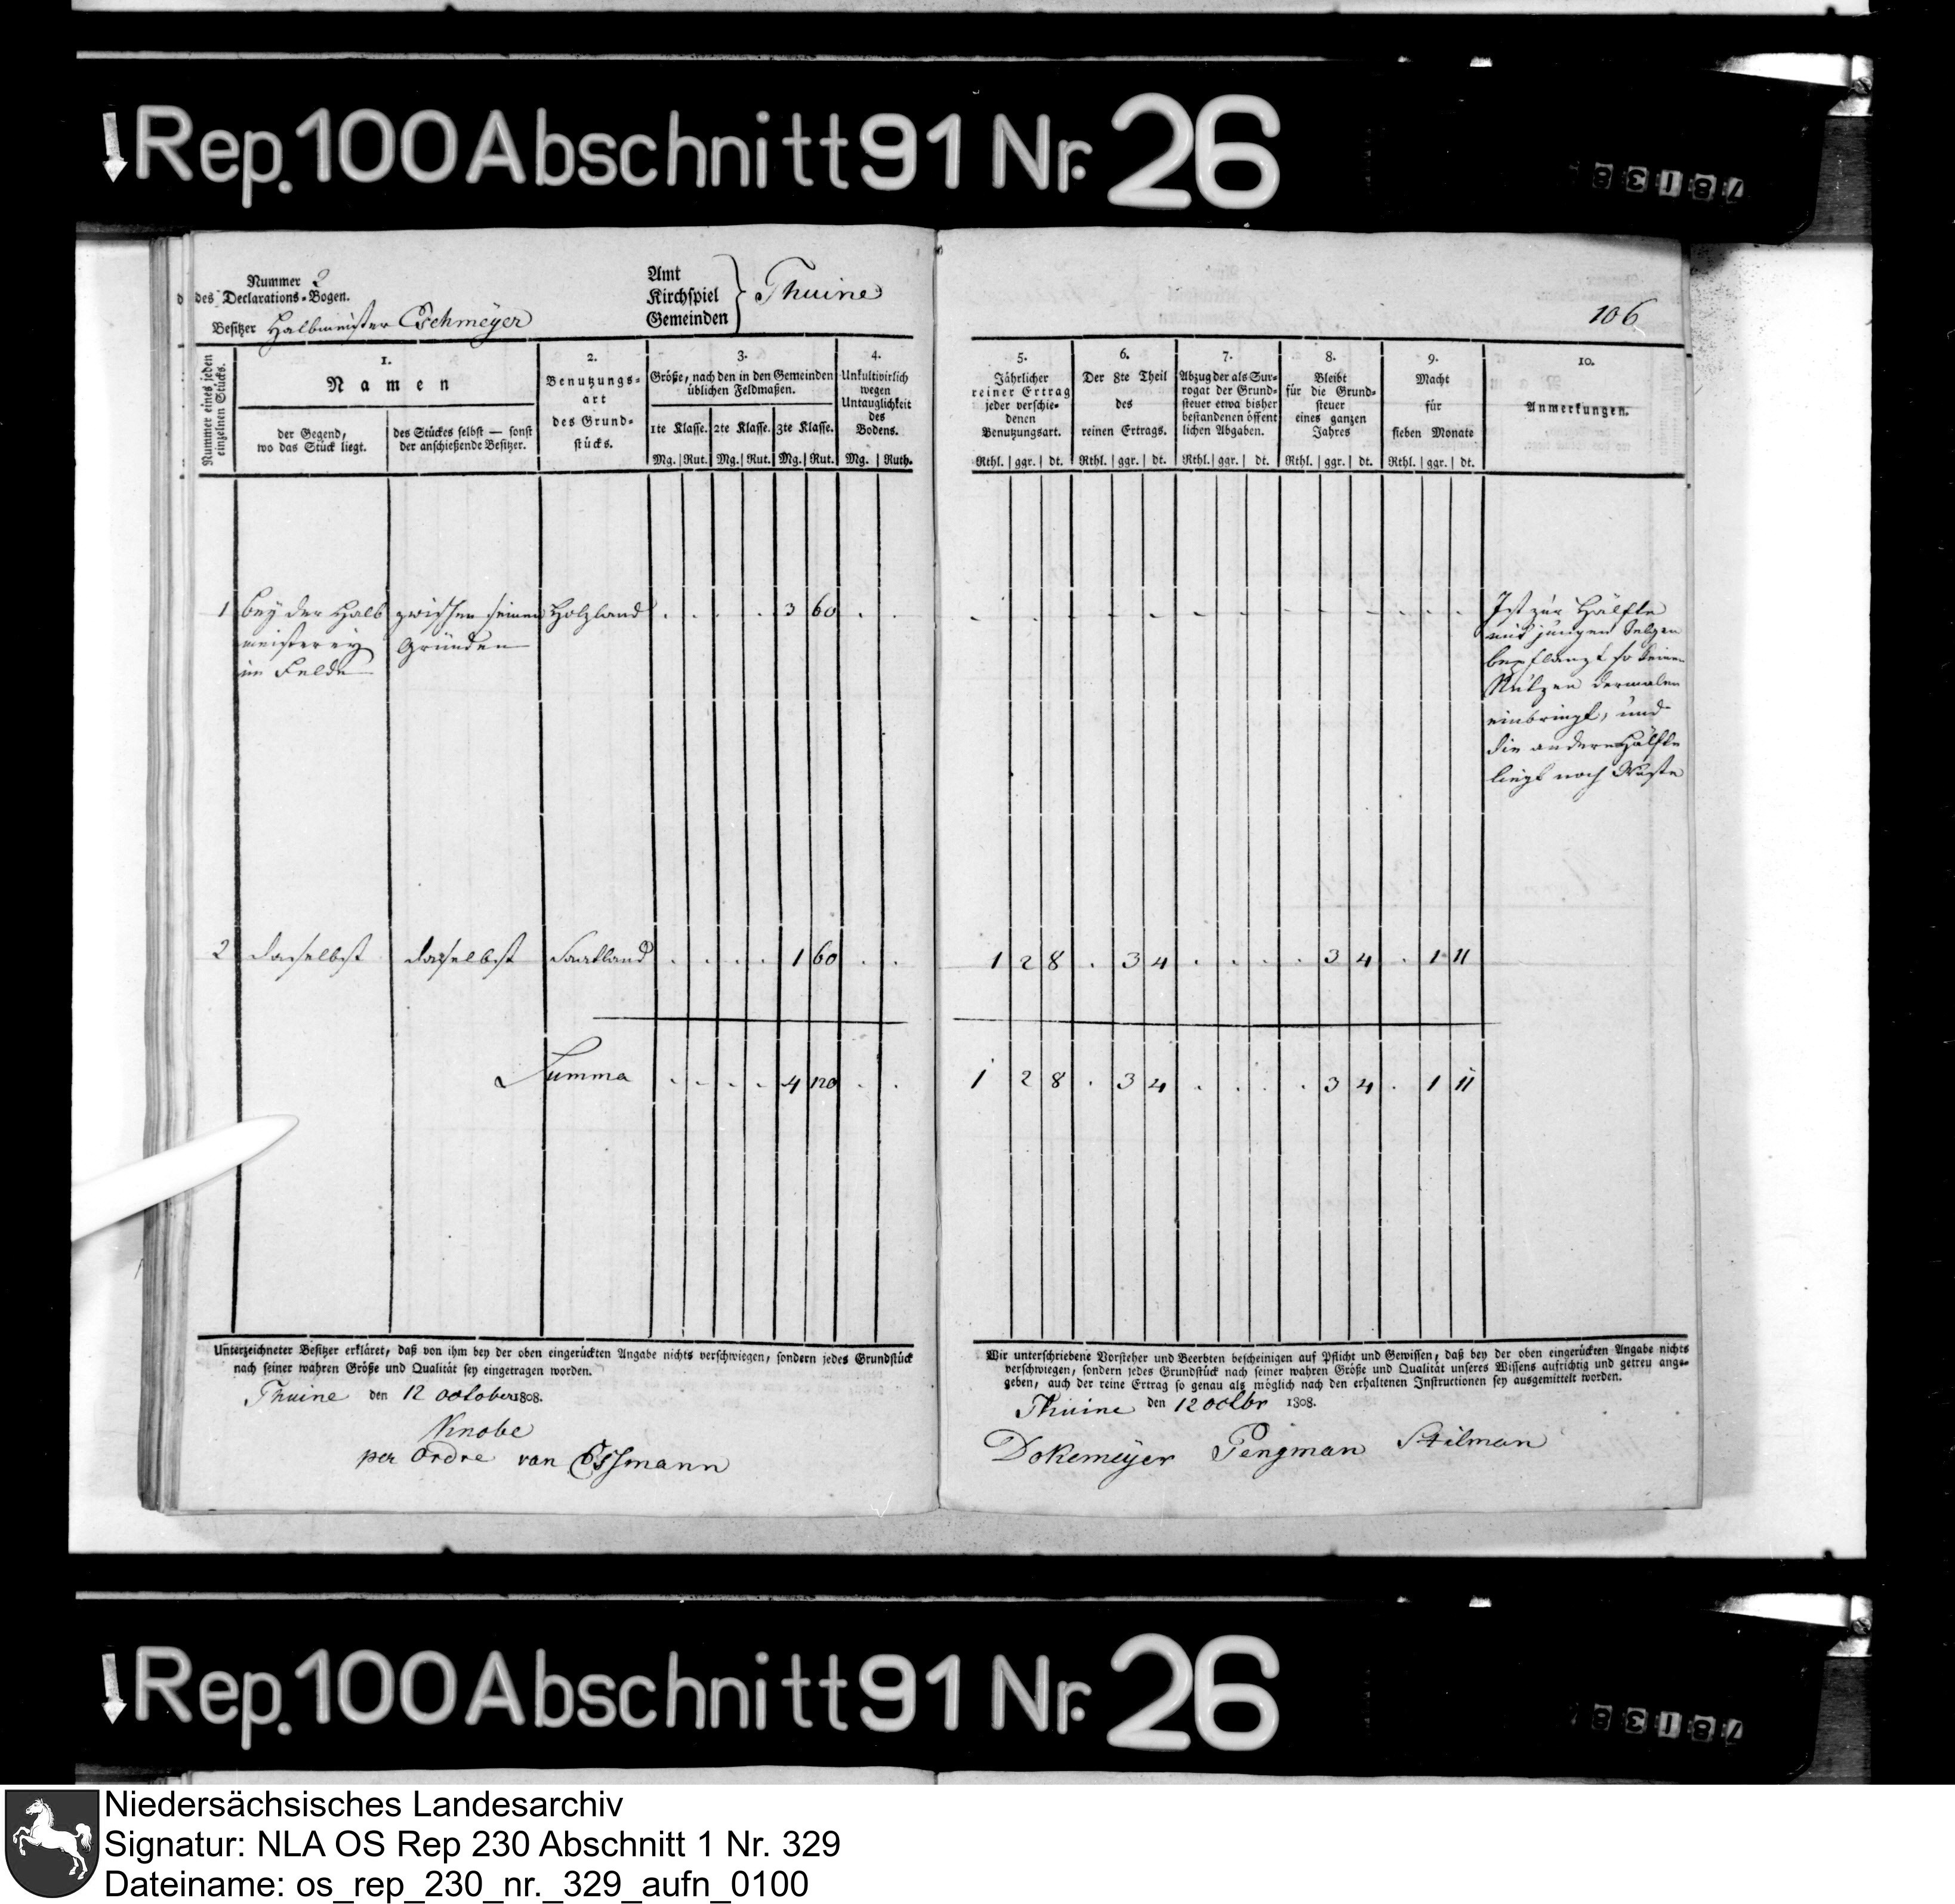 Rep. 100 Abschnitt 91 Nr. 26
Nummer 2
des Declarations-Bogen.
Besitzer Halbmeister Eschmeÿer
Amt
Kirchspiel
Gemeinden
Thuine
106
Nummer eines jeden einzelnen Stücks.
1.
Namen
der Gegend,
wo das Stück liegt.
des Stückes selbst — sonst
der anschießende Besitzer.
2.
Benutzungs-
art
des Grund-
stücks.
3.
Größe, nach den in den Gemeinden
üblichen Feldmaßen.
1te Klasse. 2te Klasse. 3te Klasse.
Mg. Rut. Mg. Rut. Mg. Rut.
4.
Unkultivirlich
wegen
Untauglichkeit
des
Bodens.
Mg. Ruth.
5.
Jährlicher
reiner Ertrag
jeder verschie-
denen
Benutzungsart.
Rthl. ggr. dt.
6.
Der 8te Theil
des
reinen Ertrags.
Rthl. ggr. dt.
7.
Abzug der als Sur-
rogat der Grund-
steuer etwa bisher
bestandenen öffent
lichen Abgaben.
Rthl. ggr. dt.
8.
Bleibt
für die Grund-
steuer
eines ganzen
Jahres
Rthl. ggr. dt.
9.
Macht
für
sieben Monate
Rthl. ggr. dt.
10.
Anmerkungen.
1 beÿ der Halb zwischen seinen Holzland . . . . 3 60 . .
meisterey Gründen
im Felde
Ist zur Hälfte
mit jungen Telgen
bepflanzt so keinen
Nutzen dermalen
einbringt, und
die andere Hälfte
liegt noch Wüste
2 daselbst daselbst Saatland . . . . 1 60 . . 1 2 8 . 3 4 . . . . 3 4 . 1 11
Summa . . . . 4 120 . . 1 2 8 . 3 4 . . . . 3 4 . 1 11
Unterzeichneter Besitzer erkläret, daß von ihm bey der oben eingerückten Angabe nichts verschwiegen, sondern jedes Grundstück
nach seiner wahren Größe und Qualität sey eingetragen worden.
Thuine den 12 october 1808.
Knobe
per Ordre van Essmann
Wir unterschriebene Vorsteher und Beerbten bescheinigen auf Pflicht und Gewissen, daß bey der oben eingerückten Angabe nichts
verschwiegen, sondern jedes Grundstück nach seiner wahren Größe und Qualität unseres Wissens aufrichtig und getreu ange-
geben, auch der reine Ertrag so genau als möglich nach den erhaltenen Instructionen sey ausgemittelt worden.
Thuine den 12 octbr 1808.
Dokemeÿer Pengman Stilman
Rep. 100 Abschnitt 91 Nr. 26
Niedersächsisches Landesarchiv
Signatur: NLA OS Rep 230 Abschnitt 1 Nr. 329
Dateiname: os_rep_230_nr._329_aufn_0100